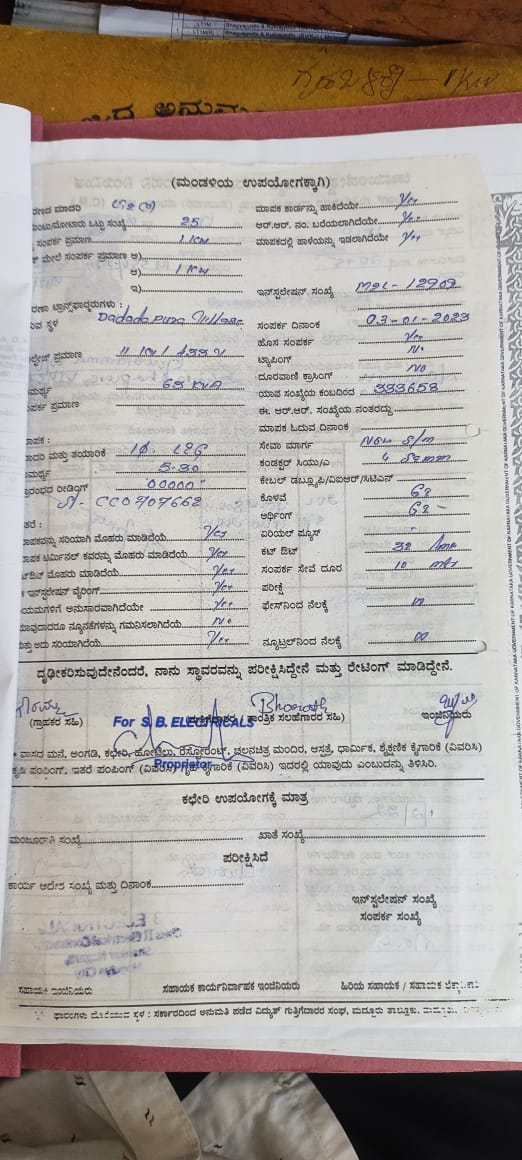 (ಮಂಡಳಿಯ ಉಪಯೋಗಕ್ಕಾಗಿ)
ಮಾಪಕ ಕಾರ್ಡನ್ನು ಹಾಕಿದೆಯೇ Yes
25 ಆರ್.ಆರ್. ನಂ. ಬರೆಯಲಾಗಿದೆಯೇ Yes
ಸಂಪರ್ಕ ಪ್ರಮಾಣ 1 KW ಮಾಪಕದಲ್ಲಿ ಹಾಳೆಯನ್ನು ಇಡಲಾಗಿದೆಯೇ Yes
ಮೇಲೆ ಸಂಪರ್ಕ ಪ್ರಮಾಣ ಅ)
ಆ) 1 KW
ಇ) ಇನ್‌ಸ್ಟಲೇಷನ್ ಸಂಖ್ಯೆ 12909
ಸ್ಥಳ Dadadapura Village ಸಂಪರ್ಕ ದಿನಾಂಕ 03-01-2023
ಹೊಸ ಸಂಪರ್ಕ Yes
ಪ್ರಮಾಣ 11 KV / 433 V ಟ್ಯಾಪಿಂಗ್ No
63 KVA ದೂರವಾಣಿ ಕ್ರಾಸಿಂಗ್ No
ಪ್ರಮಾಣ ಯಾವ ಸಂಖ್ಯೆಯ ಕಂಬದಿಂದ 333653
ಈ. ಆರ್.ಆರ್. ಸಂಖ್ಯೆಯ ನಂತರದ್ದು
ಮಾಪಕ ಓದುವ ದಿನಾಂಕ
ಮತ್ತು ತಯಾರಿಕೆ 1Φ. L&G ಸೇವಾ ಮಾರ್ಗ New S/m
5-30 ಕಂಡಕ್ಟರ್ ಸಿಯು/ಎ 4 Sqmm
ರೀಡಿಂಗ್ 00000 ಕೇಬಲ್ ಡಬ್ಲ್ಯೂಪಿ/ಐಆರ್/ಸಿಟಿಎಸ್
CC0707662 ಕೊಳವೆ GI
ಅರ್ಥಿಂಗ್ GI
ಸರಿಯಾಗಿ ಮೊಹರು ಮಾಡಿದೆಯೆ Yes ಏರಿಯಲ್ ಪ್ಯೂಸ್ -
ಟರ್ಮಿನಲ್ ಕವರನ್ನು ಮೊಹರು ಮಾಡಿದೆಯೆ Yes ಕಟ್ ಔಟ್ 32 Amp
ಮೊಹರು ಮಾಡಿದೆಯೆ Yes ಸಂಪರ್ಕ ಸೇವೆ ದೂರ 10 mtr
ಇನ್‌ಸ್ಟಲೇಷನ್ ವೈರಿಂಗ್ Yes ಪರೀಕ್ಷೆ
ಅನುಸಾರವಾಗಿದೆಯೇ Yes ಫೇಸ್‌ನಿಂದ ನೆಲಕ್ಕೆ
ನ್ಯೂನತೆಗಳನ್ನು ಗಮನಿಸಲಾಗಿದೆಯೆ No
ಅದು ಸರಿಯಾಗಿದೆಯೆ Yes ನ್ಯೂಟ್ರಲ್‌ನಿಂದ ನೆಲಕ್ಕೆ ∞
ದೃಢೀಕರಿಸುವುದೇನೆಂದರೆ, ನಾನು ಸ್ಥಾವರವನ್ನು ಪರೀಕ್ಷಿಸಿದ್ದೇನೆ ಮತ್ತು ರೇಟಿಂಗ್ ಮಾಡಿದ್ದೇನೆ.
Bharath
(ಗ್ರಾಹಕರ ಸಹಿ) ತಾಂತ್ರಿಕ ಸಲಹೆಗಾರರ ಸಹಿ) ಇಂಜಿನಿಯರು
For S. B. ELECTRICALS
Proprietor
* ವಾಸದ ಮನೆ, ಅಂಗಡಿ, ಕಛೇರಿ, ಹೋಟೆಲು, ರೆಸ್ಟೋರೆಂಟ್, ಚಲನಚಿತ್ರ ಮಂದಿರ, ಆಸ್ಪತ್ರೆ, ಧಾರ್ಮಿಕ, ಶೈಕ್ಷಣಿಕ ಕೈಗಾರಿಕೆ (ವಿವರಿಸಿ)
ಕೃಷಿ ಪಂಪಿಂಗ್, ಇತರೆ ಪಂಪಿಂಗ್ (ವಿವರಿಸಿ) ಗೃಹ ಕೈಗಾರಿಕೆ (ವಿವರಿಸಿ) ಇದರಲ್ಲಿ ಯಾವುದು ಎಂಬುದನ್ನು ತಿಳಿಸಿರಿ.
ಕಛೇರಿ ಉಪಯೋಗಕ್ಕೆ ಮಾತ್ರ
ಮಂಜೂರಾತಿ ಸಂಖ್ಯೆ ಖಾತೆ ಸಂಖ್ಯೆ
ಪರೀಕ್ಷಿಸಿದೆ
ಕಾರ್ಯ ಆದೇಶ ಸಂಖ್ಯೆ ಮತ್ತು ದಿನಾಂಕ
ಇನ್‌ಸ್ಟಲೇಷನ್ ಸಂಖ್ಯೆ
ಸಂಪರ್ಕ ಸಂಖ್ಯೆ
ಸಹಾಯಕ ಇಂಜಿನಿಯರು ಸಹಾಯಕ ಕಾರ್ಯನಿರ್ವಾಹಕ ಇಂಜಿನಿಯರು ಹಿರಿಯ ಸಹಾಯಕ / ಸಹಾಯಕ
ಫಾರಂಗಳು ದೊರೆಯುವ ಸ್ಥಳ : ಸರ್ಕಾರದಿಂದ ಅನುಮತಿ ಪಡೆದ ವಿದ್ಯುತ್ ಗುತ್ತಿಗೆದಾರರ ಸಂಘ, ಮದ್ದೂರು ತಾಲ್ಲೂಕು,